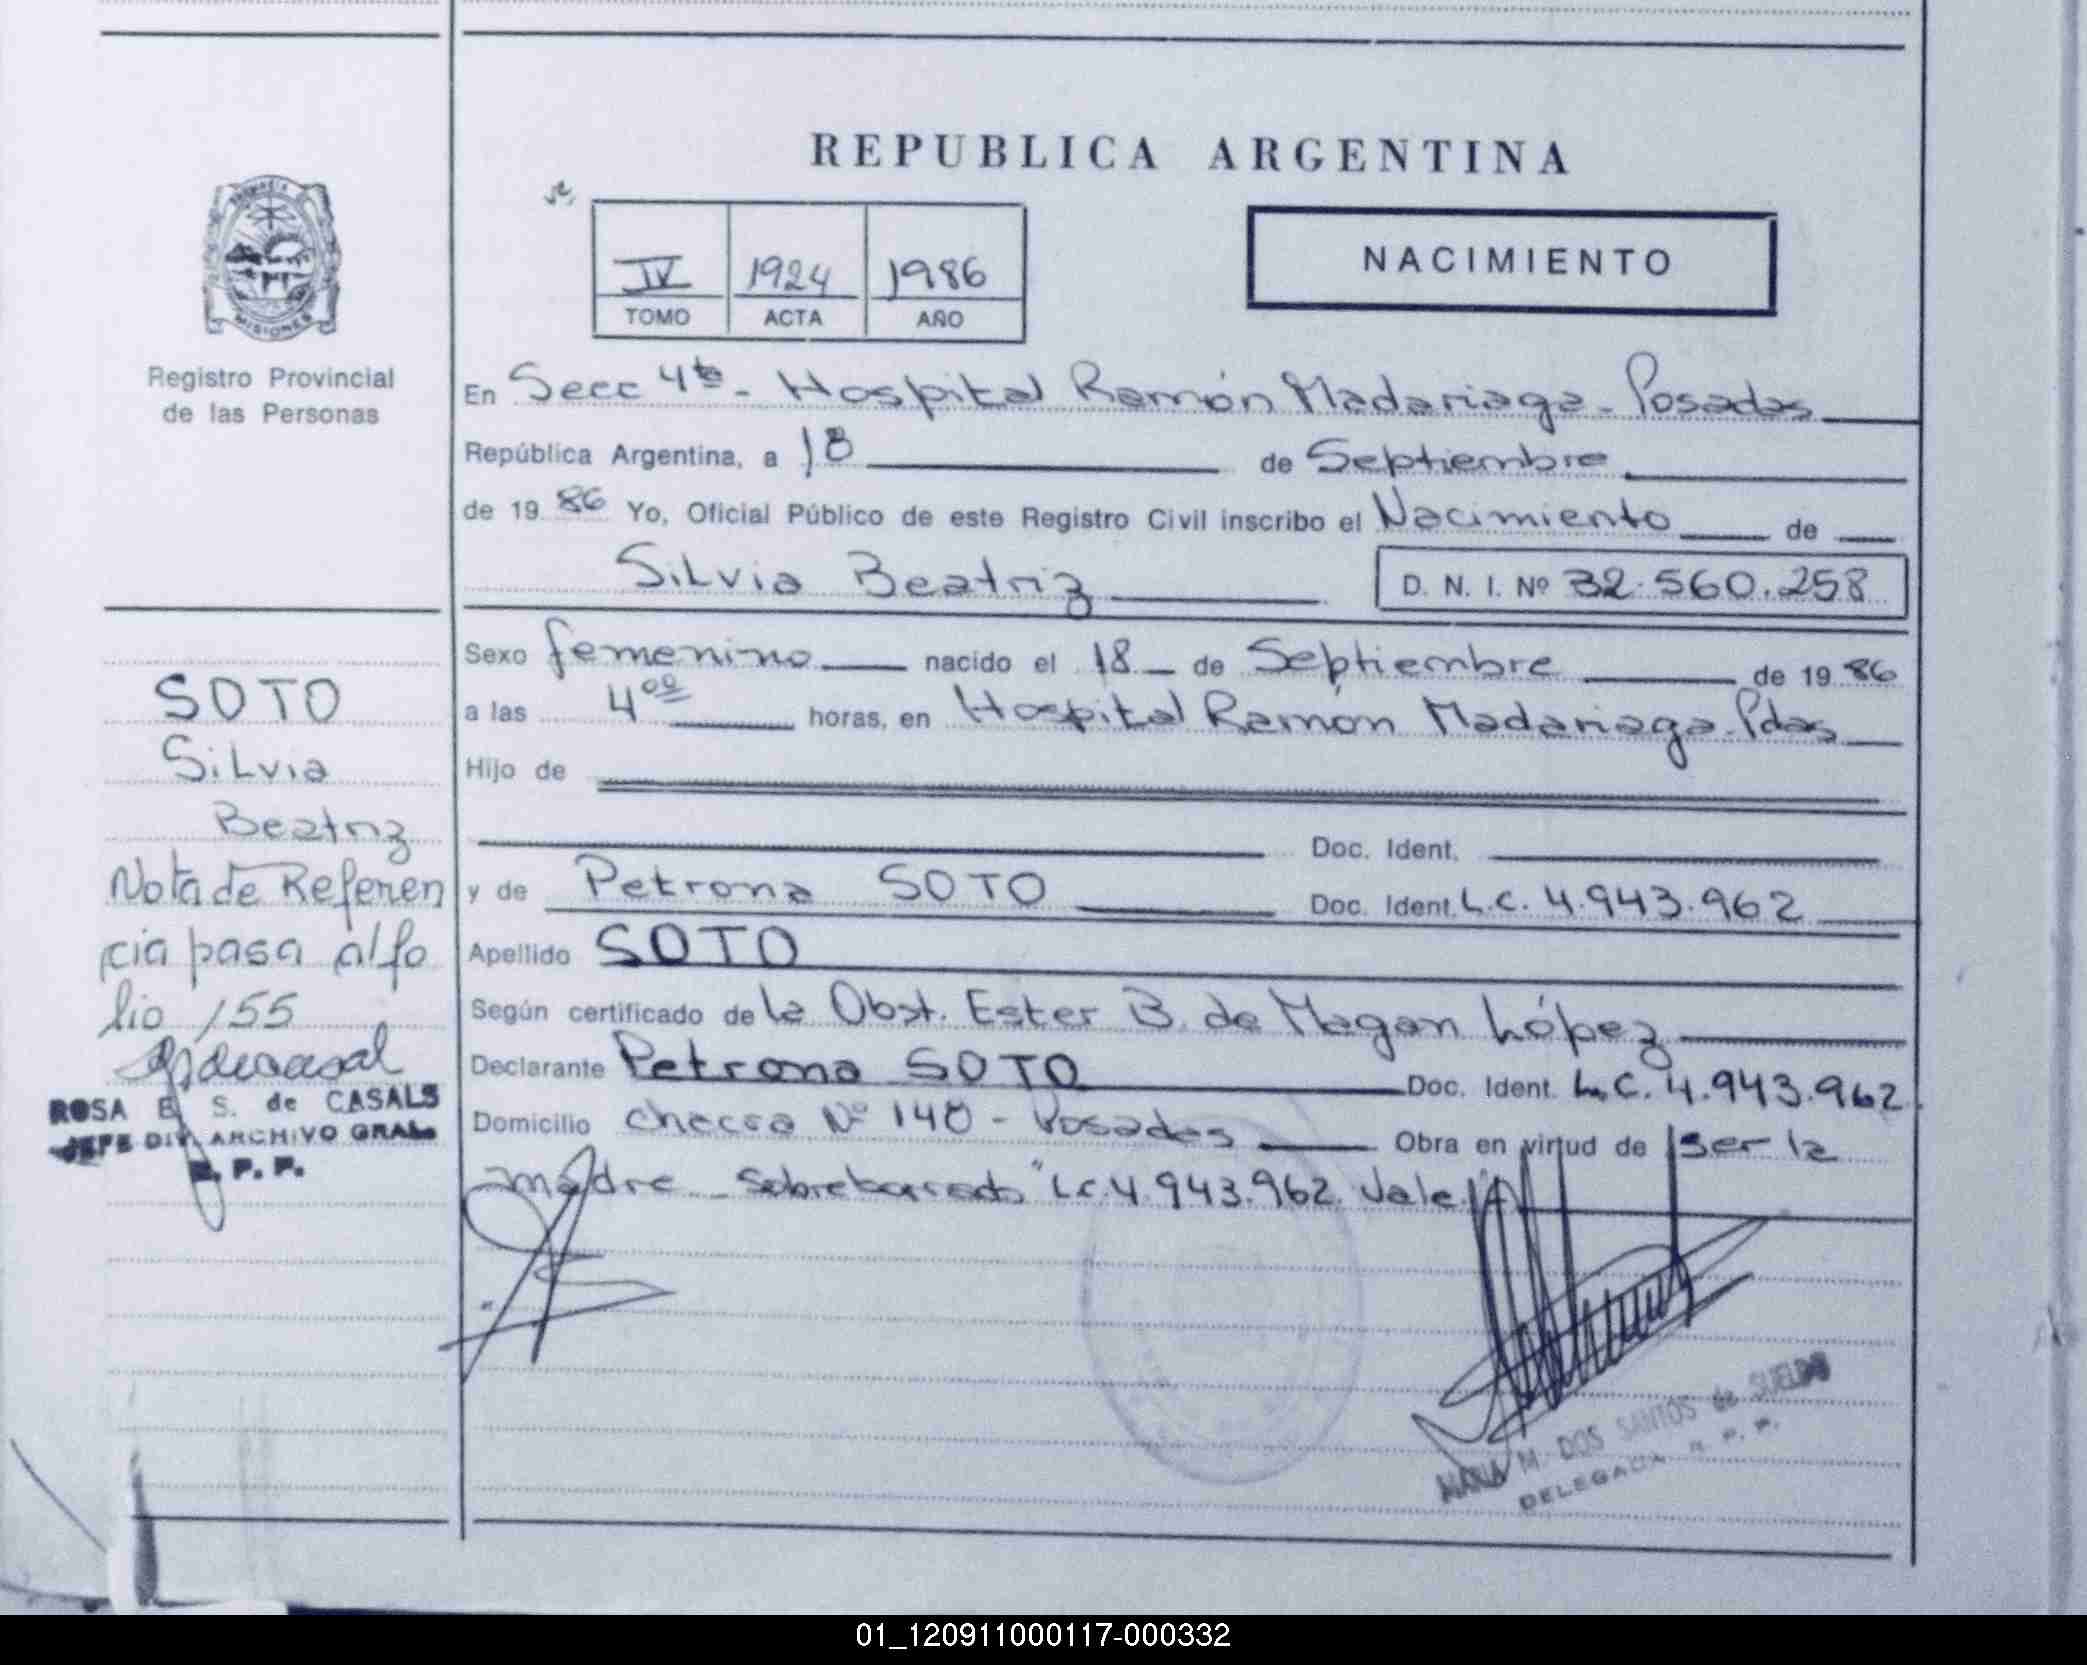 REPUBLICA ARGENTINA
IV 1924 1986
TOMO ACTA AÑO
NACIMIENTO
MISIONES
Registro Provincial
de las Personas
En Secc 4ta - Hospital Ramón Madariaga - Posadas
República Argentina, a 18 de Septiembre
de 1986 Yo, Oficial Público de este Registro Civil inscribo el Nacimiento de
Silvia Beatriz D. N. I. Nº 32.560.258
Sexo femenino nacido el 18 de Septiembre de 1986
a las 4 00 horas, en Hospital Ramón Madariaga - Pdas
Hijo de
Doc. Ident.
y de Petrona SOTO Doc. Ident. L.C. 4.943.962
Apellido SOTO
Según certificado de la Obst. Ester B. de Magan López
Declarante Petrona SOTO Doc. Ident. L.C. 4.943.962
Domicilio Chacra Nº 140 - Posadas Obra en virtud de ser la
madre - Sobreborrado "L.C. 4.943.962. Vale.
SOTO
Silvia
Beatriz
Nota de Referen
cia pasa al fo
lio 155
ROSA E. S. de CASALS
JEFE DIV. ARCHIVO GRAL.
R. P. P.
MARIA M. DOS SANTOS de SUELDO
DELEGADA R. P. P.
01_120911000117-000332